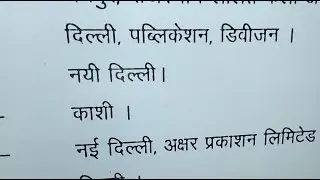 दिल्ली, पब्लिकेशन, डिवीजन ।
नयी दिल्ली।
काशी ।
नई दिल्ली, अक्षर प्रकाशन लिमिटेड